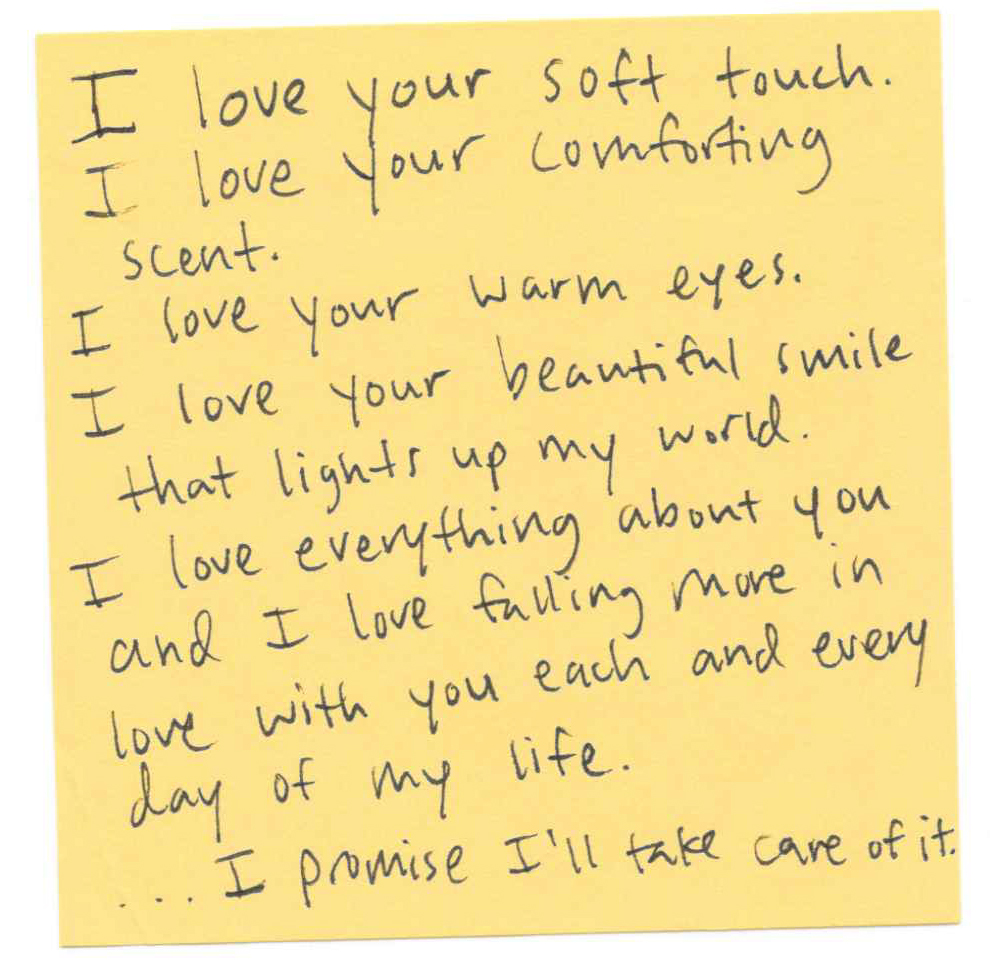 I love your soft touch.
I love your comforting
scent.
I love your warm eyes.
I love your beautiful smile
that lights up my world.
I love everything about you
and I love falling more in
love with you each and every
day of my life.
... I promise I'll take care of it.